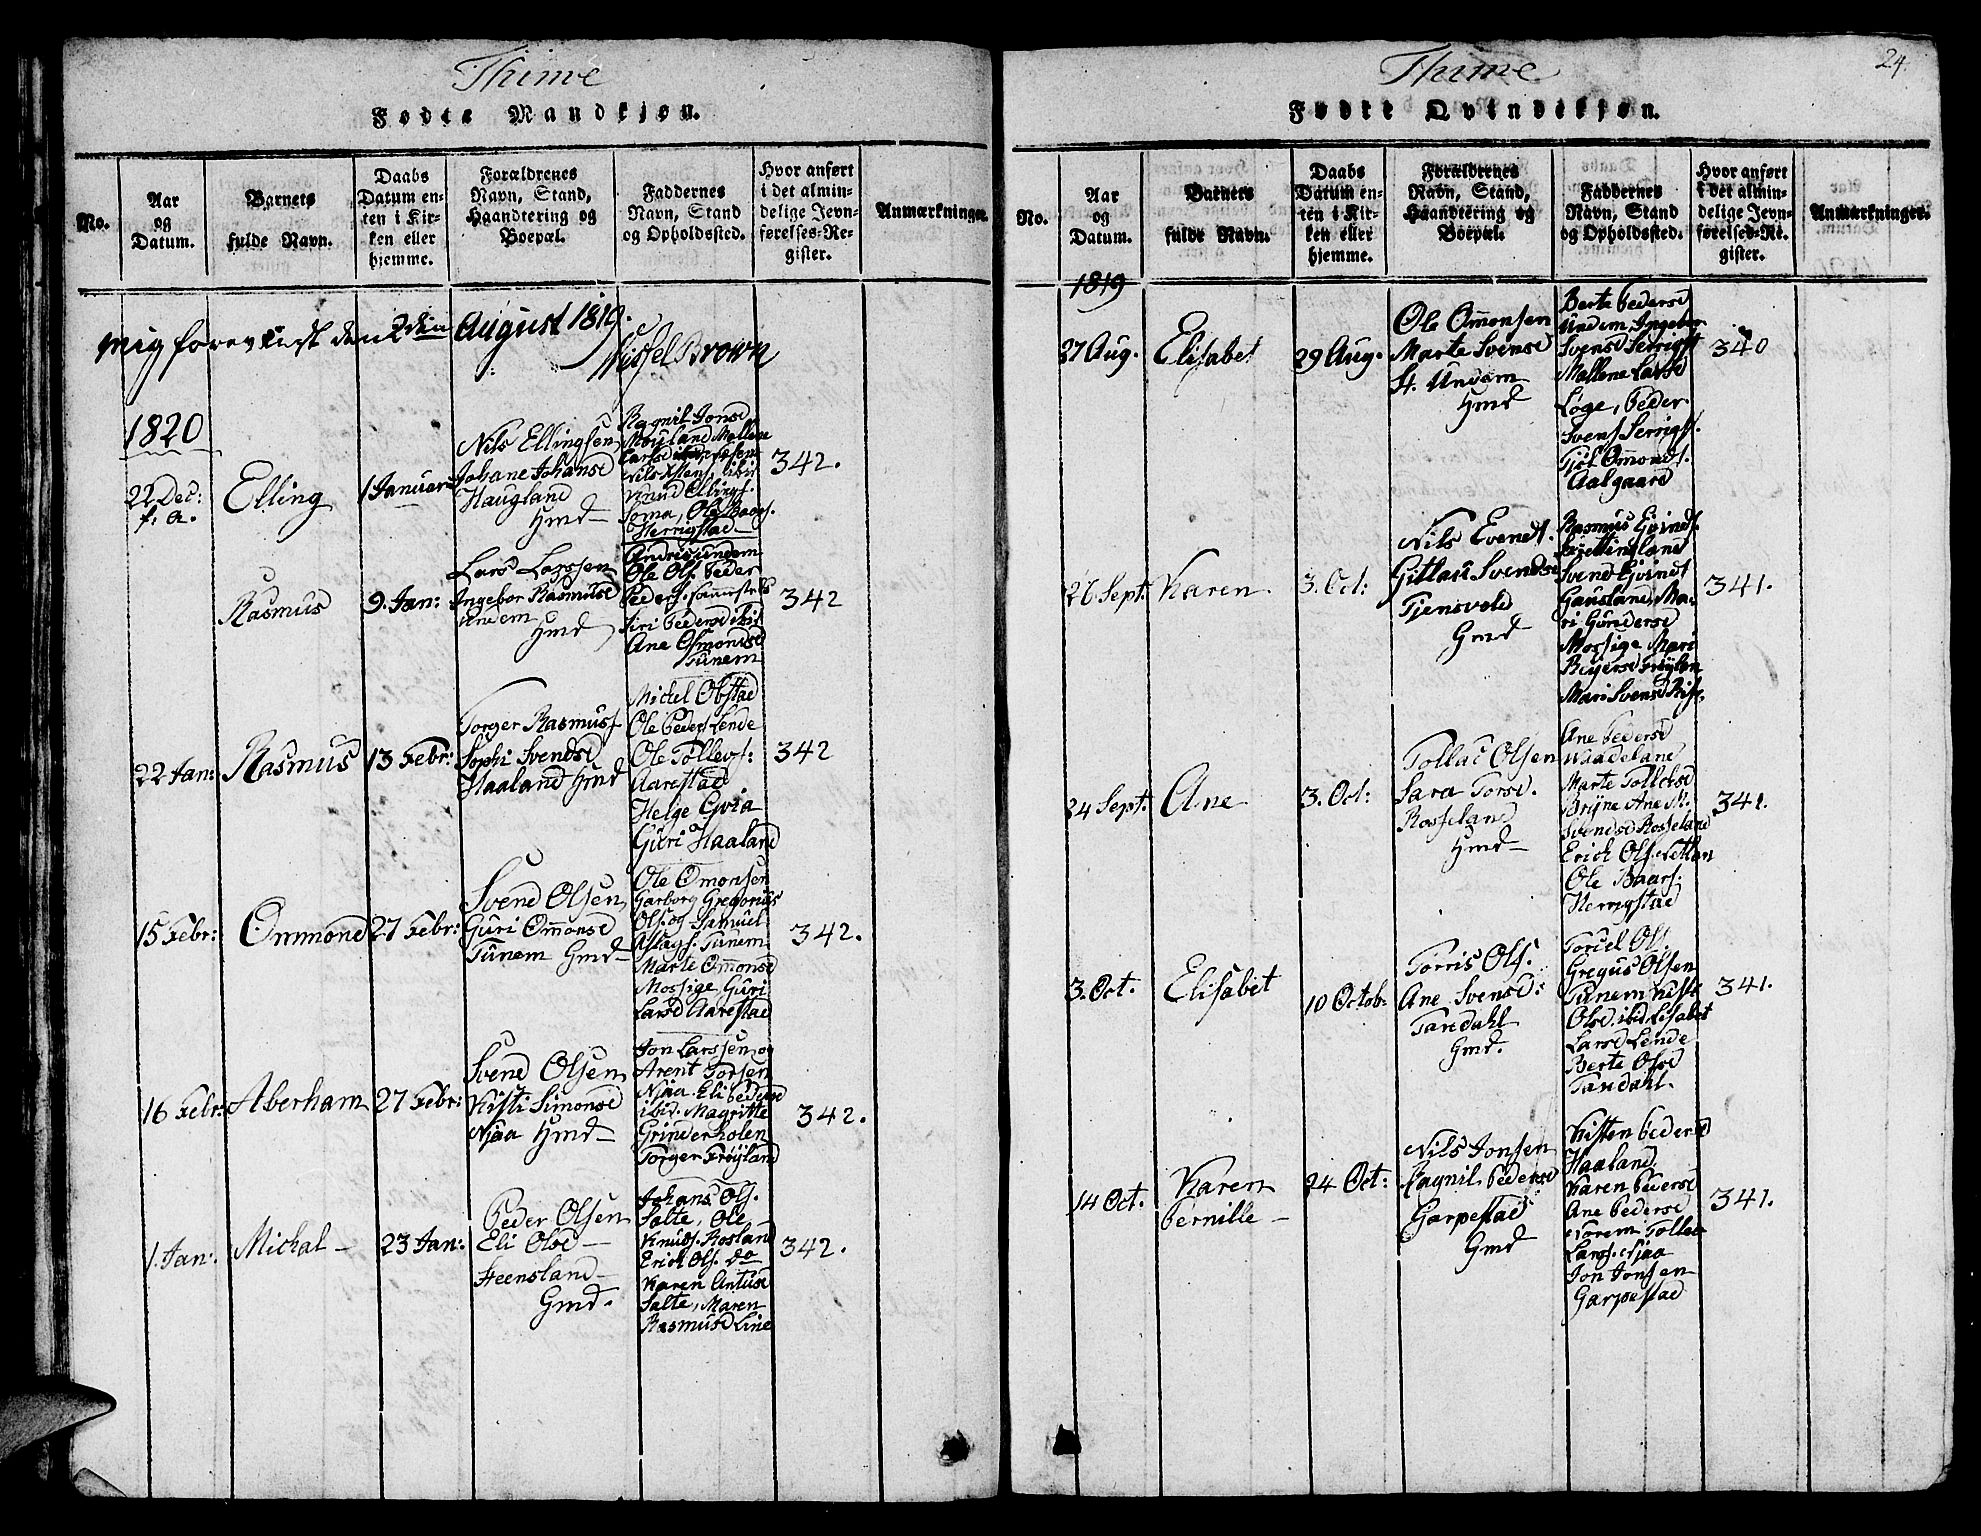 Thime
Fødte Mandkjøn.
No.
Aar
og
Datum.
Barnets
fulde Navn.
Daabs
Datum en-
ten i Kir-
ken eller
hjemme.
Forældrenes
Navn, Stand,
Haandtering og
Boepæl.
Faddernes
Navn, Stand
og Opholdssted.
Hvor anført
i det almin-
delige Jevn-
førelses-Re-
gister.
Anmærkninger.
mig foreviist den 2den August 1819.
Sissel Brown
1820
22 Dec:
f. a.
Elling
1 Januar
Nils Ellingsen
Johane Johansd
Haugland
Gmd
Ragnil Jonsd
Nils
Knud Ellings.
Soma, Ole Baars.
Herrigstad
342.
Rasmus
9. Jan:
Lars Larssen
Ingebor Rasmusd
undem
Gmd
Andreis undem
Ole Ols. Peder
Peders.
Siri Pedersd ibid
Ane Osmondsd
Tunem
342
22 Jan:
Rasmus
13 Febr:
Torger Rasmuss
Sophi Svendsd
Haaland Gmd
Michel Obstad
Ole Peders Lende
Ole Tollevs:
Aarestad
Helge Evia
Guri Haaland
342
15 Febr:
Ommond
27 Febr:
Svend Olsen
Guri Ommonsd
Tunem Gmd
Ole Omonsen
Garborg Gregorius
Ols. og Samuel
Aslags. Tunem
Marte Ommonsd
Mossige Guri
Larsd Aarestad
342.
16 Febr:
Aberham
27 Febr:
Svend Olsen
Kisti Simonsd
Njaa Gmd
Jon Larssen og
Arent Torsen
Njaa Eli Pedersd
ibid. Magritte
Grinderholen
Torger Frøyland
342.
1. Jan:
Michal
23 Jan:
Peder Olsen
Eli Olsd
Steensland
Gmd.
Johans Ols.
Salte, Ole
Knuds. Rosland
Erich Ols. do
Karen Antusd
Salte, Maren
Rasmusd Line
342.
24.
Thime
Fødte Qvindekjøn.
No.
Aar
og
Datum.
Barnets
fulde Navn.
Daabs
Datum en-
ten i Kir-
ken eller
hjemme.
Forældrenes
Navn, Stand,
Haandtering og
Boepæl.
Faddernes
Navn, Stand
og Opholdssted.
Hvor anført
i det almin-
delige Jevn-
førelses-Re-
gister.
Anmærkninger.
1819
27 Aug.
Elisabet
29 Aug.
Ole Ommonsen
Marte Svensd
St. Undem
Gmd
Berte Pedersd
Undem, Ingebor
Svensd Serrigst
Mallene Larsd
Løge, Peder
Svens. Serrigs.
Tjøl Ommonds.
Aalgaard
340
26 Sept:
Karen.
3. Oct:
Nils Evends.
Gitlau Svendsd
Tjensvold
Gmd
Rasmus Ejvinds.
Kjettingland
Svend Ejvinds
Gausland, Ma-
ri Gundersd
Mossige Mari
Reyersd Frøylan
Mari Svensd Rise.
341.
24 Sept.
Ane
3. Oct:
Tollac Olsen
Sara Torsd.
Rosseland
Gmd
Ane Pedersd
Waadeland
Marte Tollevsd
Bryne Ane M.
Svendsd Rosseland
Erich Ols. Netlan
Ole Baars.
Herrigstad
341.
3. Oct.
Elisabet
10 Octob:
Torris Ols.
Ane Svensd:
Tandahl
Gmd.
Torcel Ols.
Gregus Olsen
Tunem
Olsd. ibid Lisabet
Larsd Lende
Berte Olsd
Tandahl.
341.
14 Oct.
Karen
Pernille
24 Oct:
Nils Jonsen
Ragnil Pedersd
Garpestad
Gmd
Kisten Pedersd
Haaland
Karen Pedersd
Ane Pedersd
Norem Tollac
Lars. Njaa
Jon Jonsen
Garpestad
341.